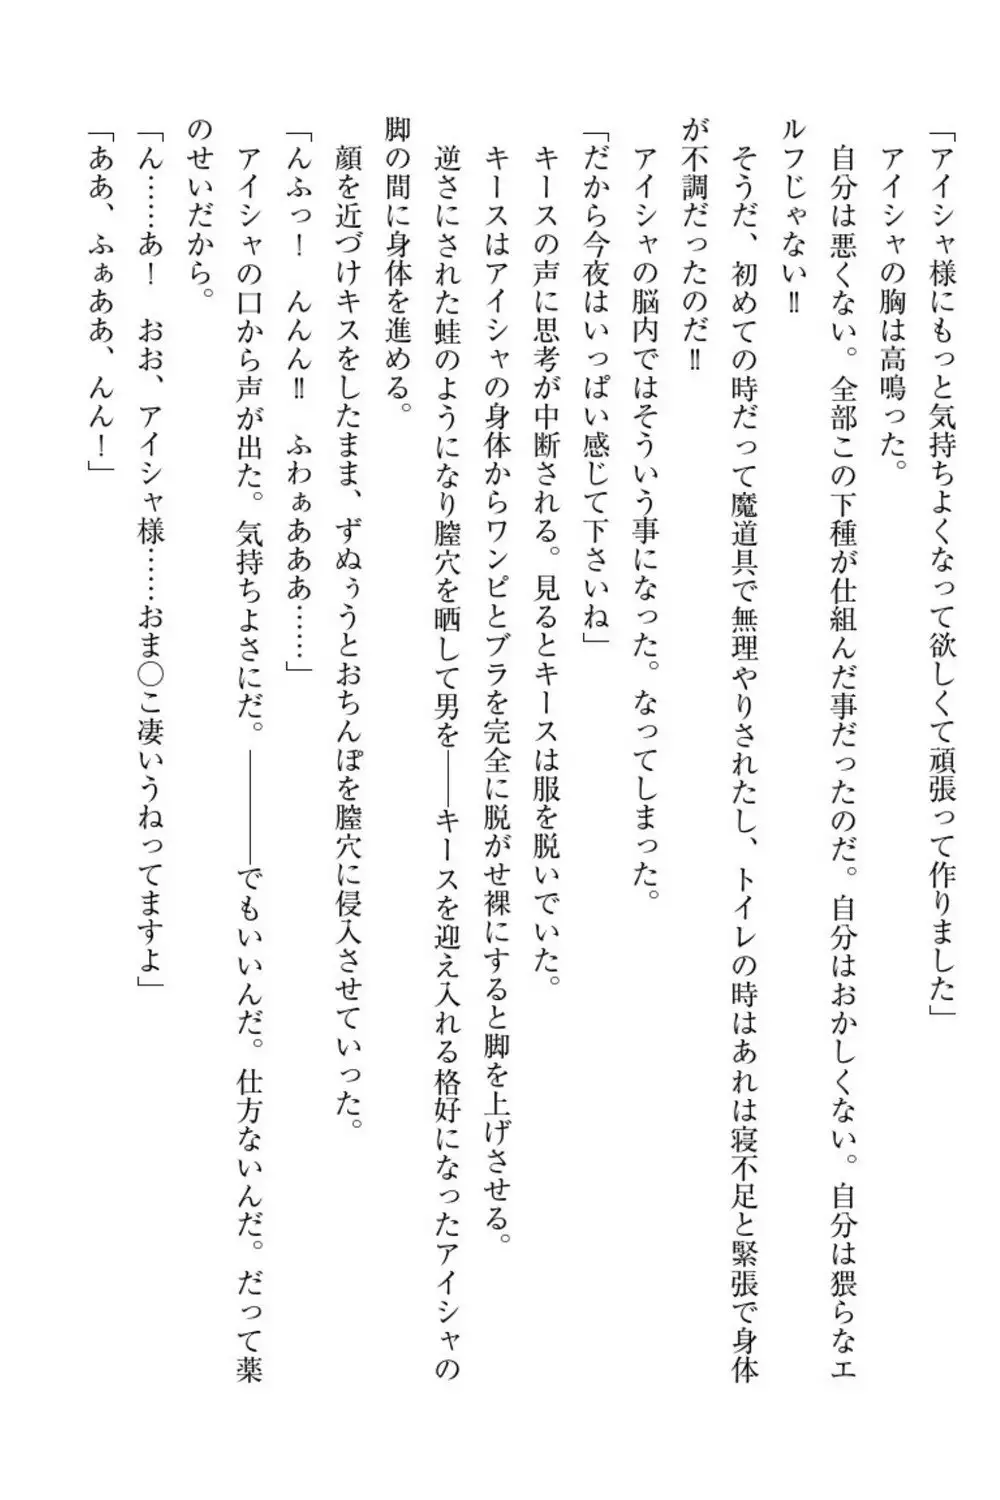 「アイシャ様にもっと気持ちよくなって欲しくて頑張って作りました」
アイシャの胸は高鳴った。
自分は悪くない。全部この下種が仕組んだ事だったのだ。自分はおかしくない。自分は猥らなエ
ルフじゃない‼
そうだ、初めての時だって魔道具で無理やりされたし、トイレの時はあれは寝不足と緊張で身体
が不調だったのだ‼
アイシャの脳内ではそういう事になった。なってしまった。
「だから今夜はいっぱい感じて下さいね」
キースの声に思考が中断される。見るとキースは服を脱いでいた。
キースはアイシャの身体からワンピとブラを完全に脱がせ裸にすると脚を上げさせる。
逆さにされた蛙のようになり膣穴を晒して男を――キースを迎え入れる格好になったアイシャの
脚の間に身体を進める。
顔を近づけキスをしたまま、ずぬぅうとおちんぽを膣穴に侵入させていった。
「んふっ！　んんん‼　ふわぁあああ……」
アイシャの口から声が出た。気持ちよさにだ。――――でもいいんだ。仕方ないんだ。だって薬
のせいだから。
「ん……あ！　おお、アイシャ様……おま〇こ凄いうねってますよ」
「ああ、ふぁああ、んん！」